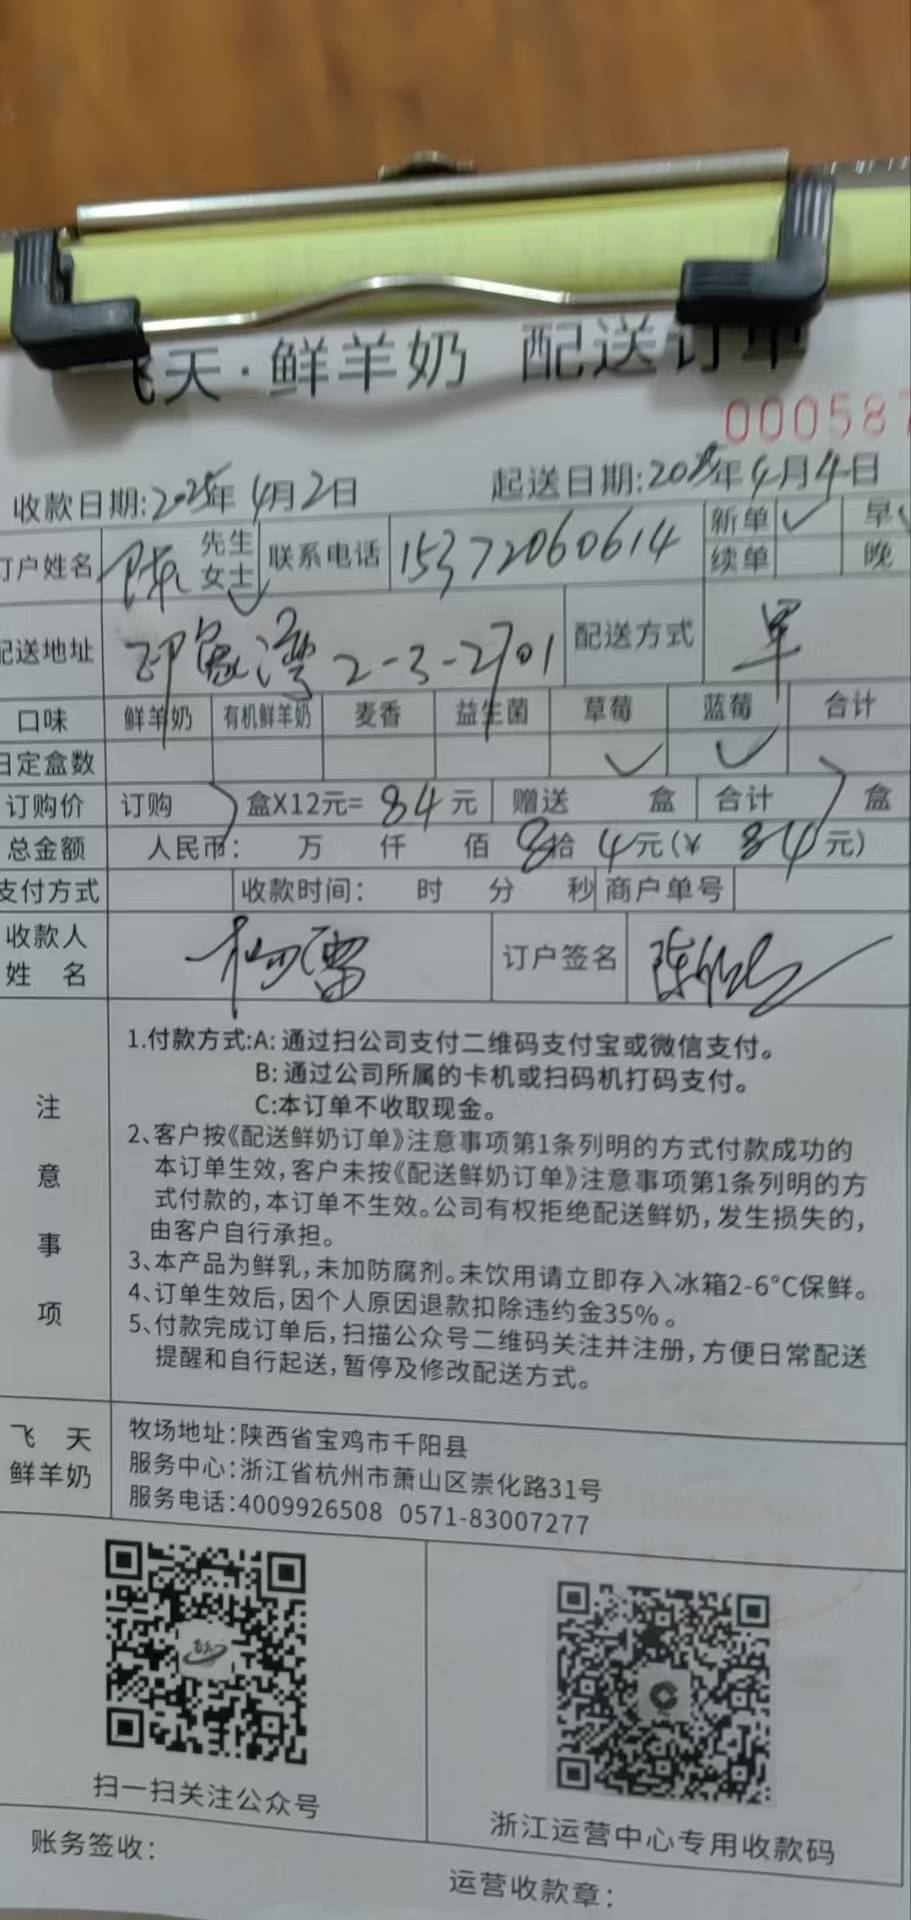 飞天·鲜羊奶 配送订单
000587
收款日期:2025年4月2日 起送日期:2025年4月4日
订户姓名 陈 先生 女士 联系电话 15372060614 新单 ✓ 早 ✓
续单 晚
配送地址 印象湾2-3-2701 配送方式 早
口味 鲜羊奶 有机鲜羊奶 麦香 益生菌 草莓 蓝莓 合计
日定盒数 ✓ ✓
订购价 订购 7 盒X12元= 84 元 赠送 盒 合计 7 盒
总金额 人民币: 万 仟 佰 8拾 4元(¥ 84元)
支付方式 收款时间: 时 分 秒 商户单号
收款人 姓 名 杨雷 订户签名 陈
注意事项
1.付款方式:A: 通过扫公司支付二维码支付宝或微信支付。
B: 通过公司所属的卡机或扫码机打码支付。
C:本订单不收取现金。
2、客户按《配送鲜奶订单》注意事项第1条列明的方式付款成功的
本订单生效,客户未按《配送鲜奶订单》注意事项第1条列明的方
式付款的,本订单不生效。公司有权拒绝配送鲜奶,发生损失的,
由客户自行承担。
3、本产品为鲜乳,未加防腐剂。未饮用请立即存入冰箱2-6°C保鲜。
4、订单生效后,因个人原因退款扣除违约金35%。
5、付款完成订单后,扫描公众号二维码关注并注册,方便日常配送
提醒和自行起送,暂停及修改配送方式。
飞天
鲜羊奶
牧场地址:陕西省宝鸡市千阳县
服务中心:浙江省杭州市萧山区崇化路31号
服务电话:4009926508 0571-83007277
扫一扫关注公众号
浙江运营中心专用收款码
账务签收:
运营收款章: